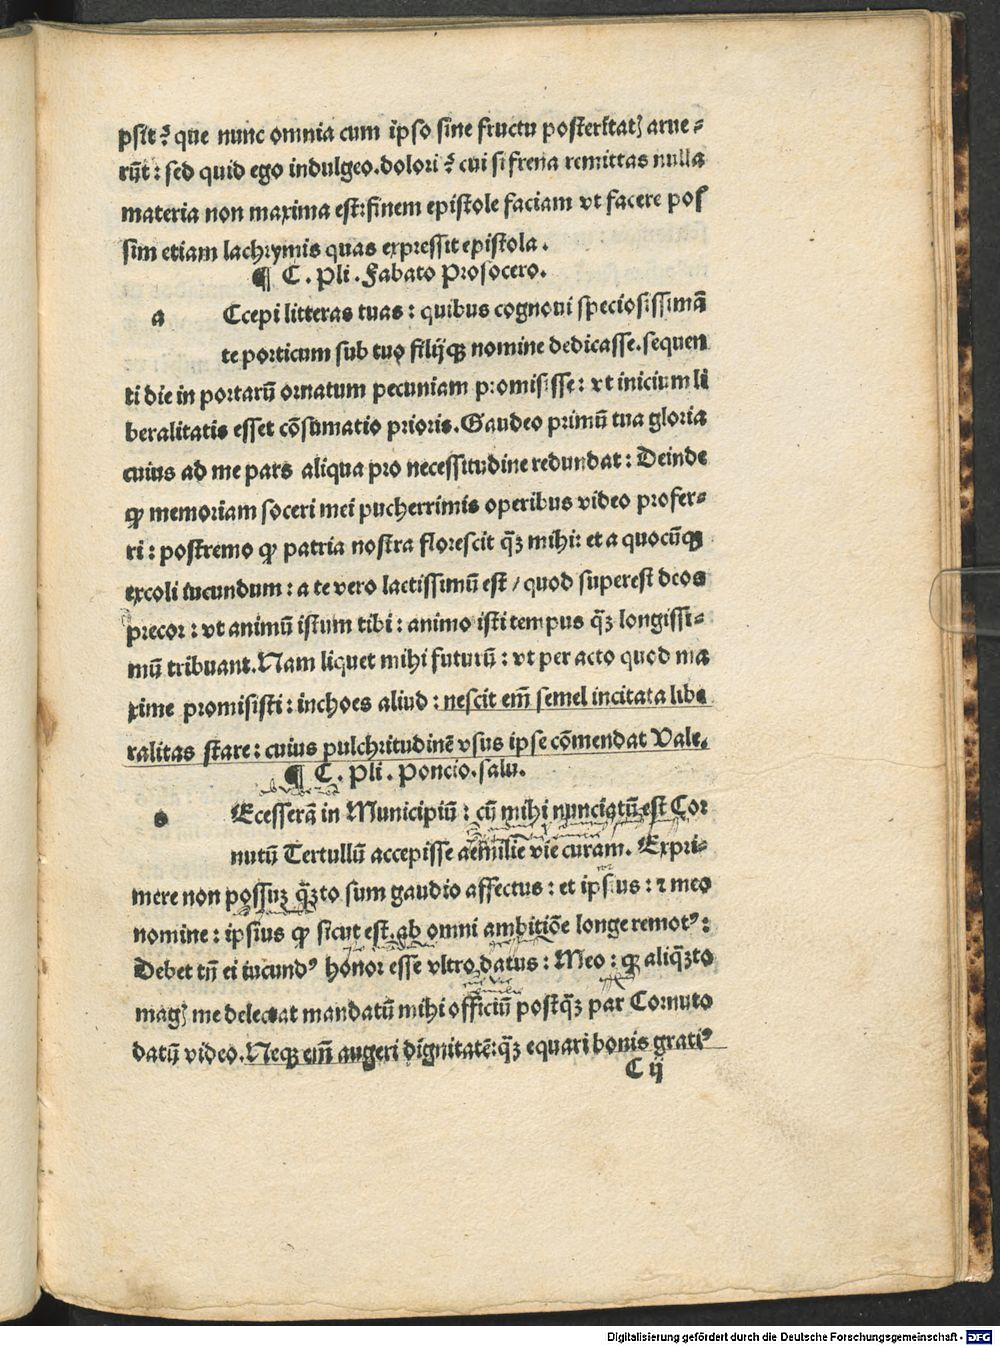 psit? que nunc omnia cum ipso sine fructu posteritatꝭ arue⸗
rūt: sed quid ego indulgeo.dolori? cui si frena remittas nulla
materia non maxima est:finem epistole faciam vt facere pos
sim etiam lachrymis quas expressit epistola.
¶ C. Pli. Fabato Prosocero.
a Ccepi litteras tuas: quibus cognoui speciosissimā
te porticum sub tuo filijqꝫ nomine dedicasse.sequen
ti die in portarū ornatum pecuniam promisisse: vt inicium li
beralitatis esset cōsumatio prioris.Gaudeo primū tua gloria
cuius ad me pars aliqua pro necessitudine redundat: Deinde
ꝙ memoriam soceri mei pucherrimis operibus video profer⸗
ri: postremo ꝙ patria nostra florescit q̄ꝫ mihi: et a quocūqꝫ
excoli iucundum: a te vero lactissimū est/quod superest deos
precor: vt animū istum tibi: animo isti tempus q̄ꝫ longissi⸗
mū tribuant.Nam liquet mihi futurū: vt per acto quod ma
xime promisisti: inchoes aliud: nescit em̄ semel incitata libe
ralitas stare: cuius pulchritudinē vsus ipse cōmendat Vale.
¶ C. Pli. Poncio.salu.
s Ecesserā in Municipiū: cū mihi nunciatū est Cor
nutū Tertullū accepisse aemilie vie curam. Expri⸗
mere non possuꝫ q̄ꝫto sum gaudio affectus: et ipsius: ⁊ meo
nomine: ipsius ꝙ sicut est ab omni ambitiōe longe remotꝰ:
Debet tn̄ ei iucundꝰ honor esse vltro datus: Meo: ꝙ aliq̄ꝫto
magꝭ me delectat mandatū mihi officiū postq̄ꝫ par Cornuto
datū video.Neqꝫ em̄ augeri dignitatē:q̄ꝫ equari bonis gratiꝰ
C ij
Digitalisierung gefördert durch die Deutsche Forschungsgemeinschaft - DFG